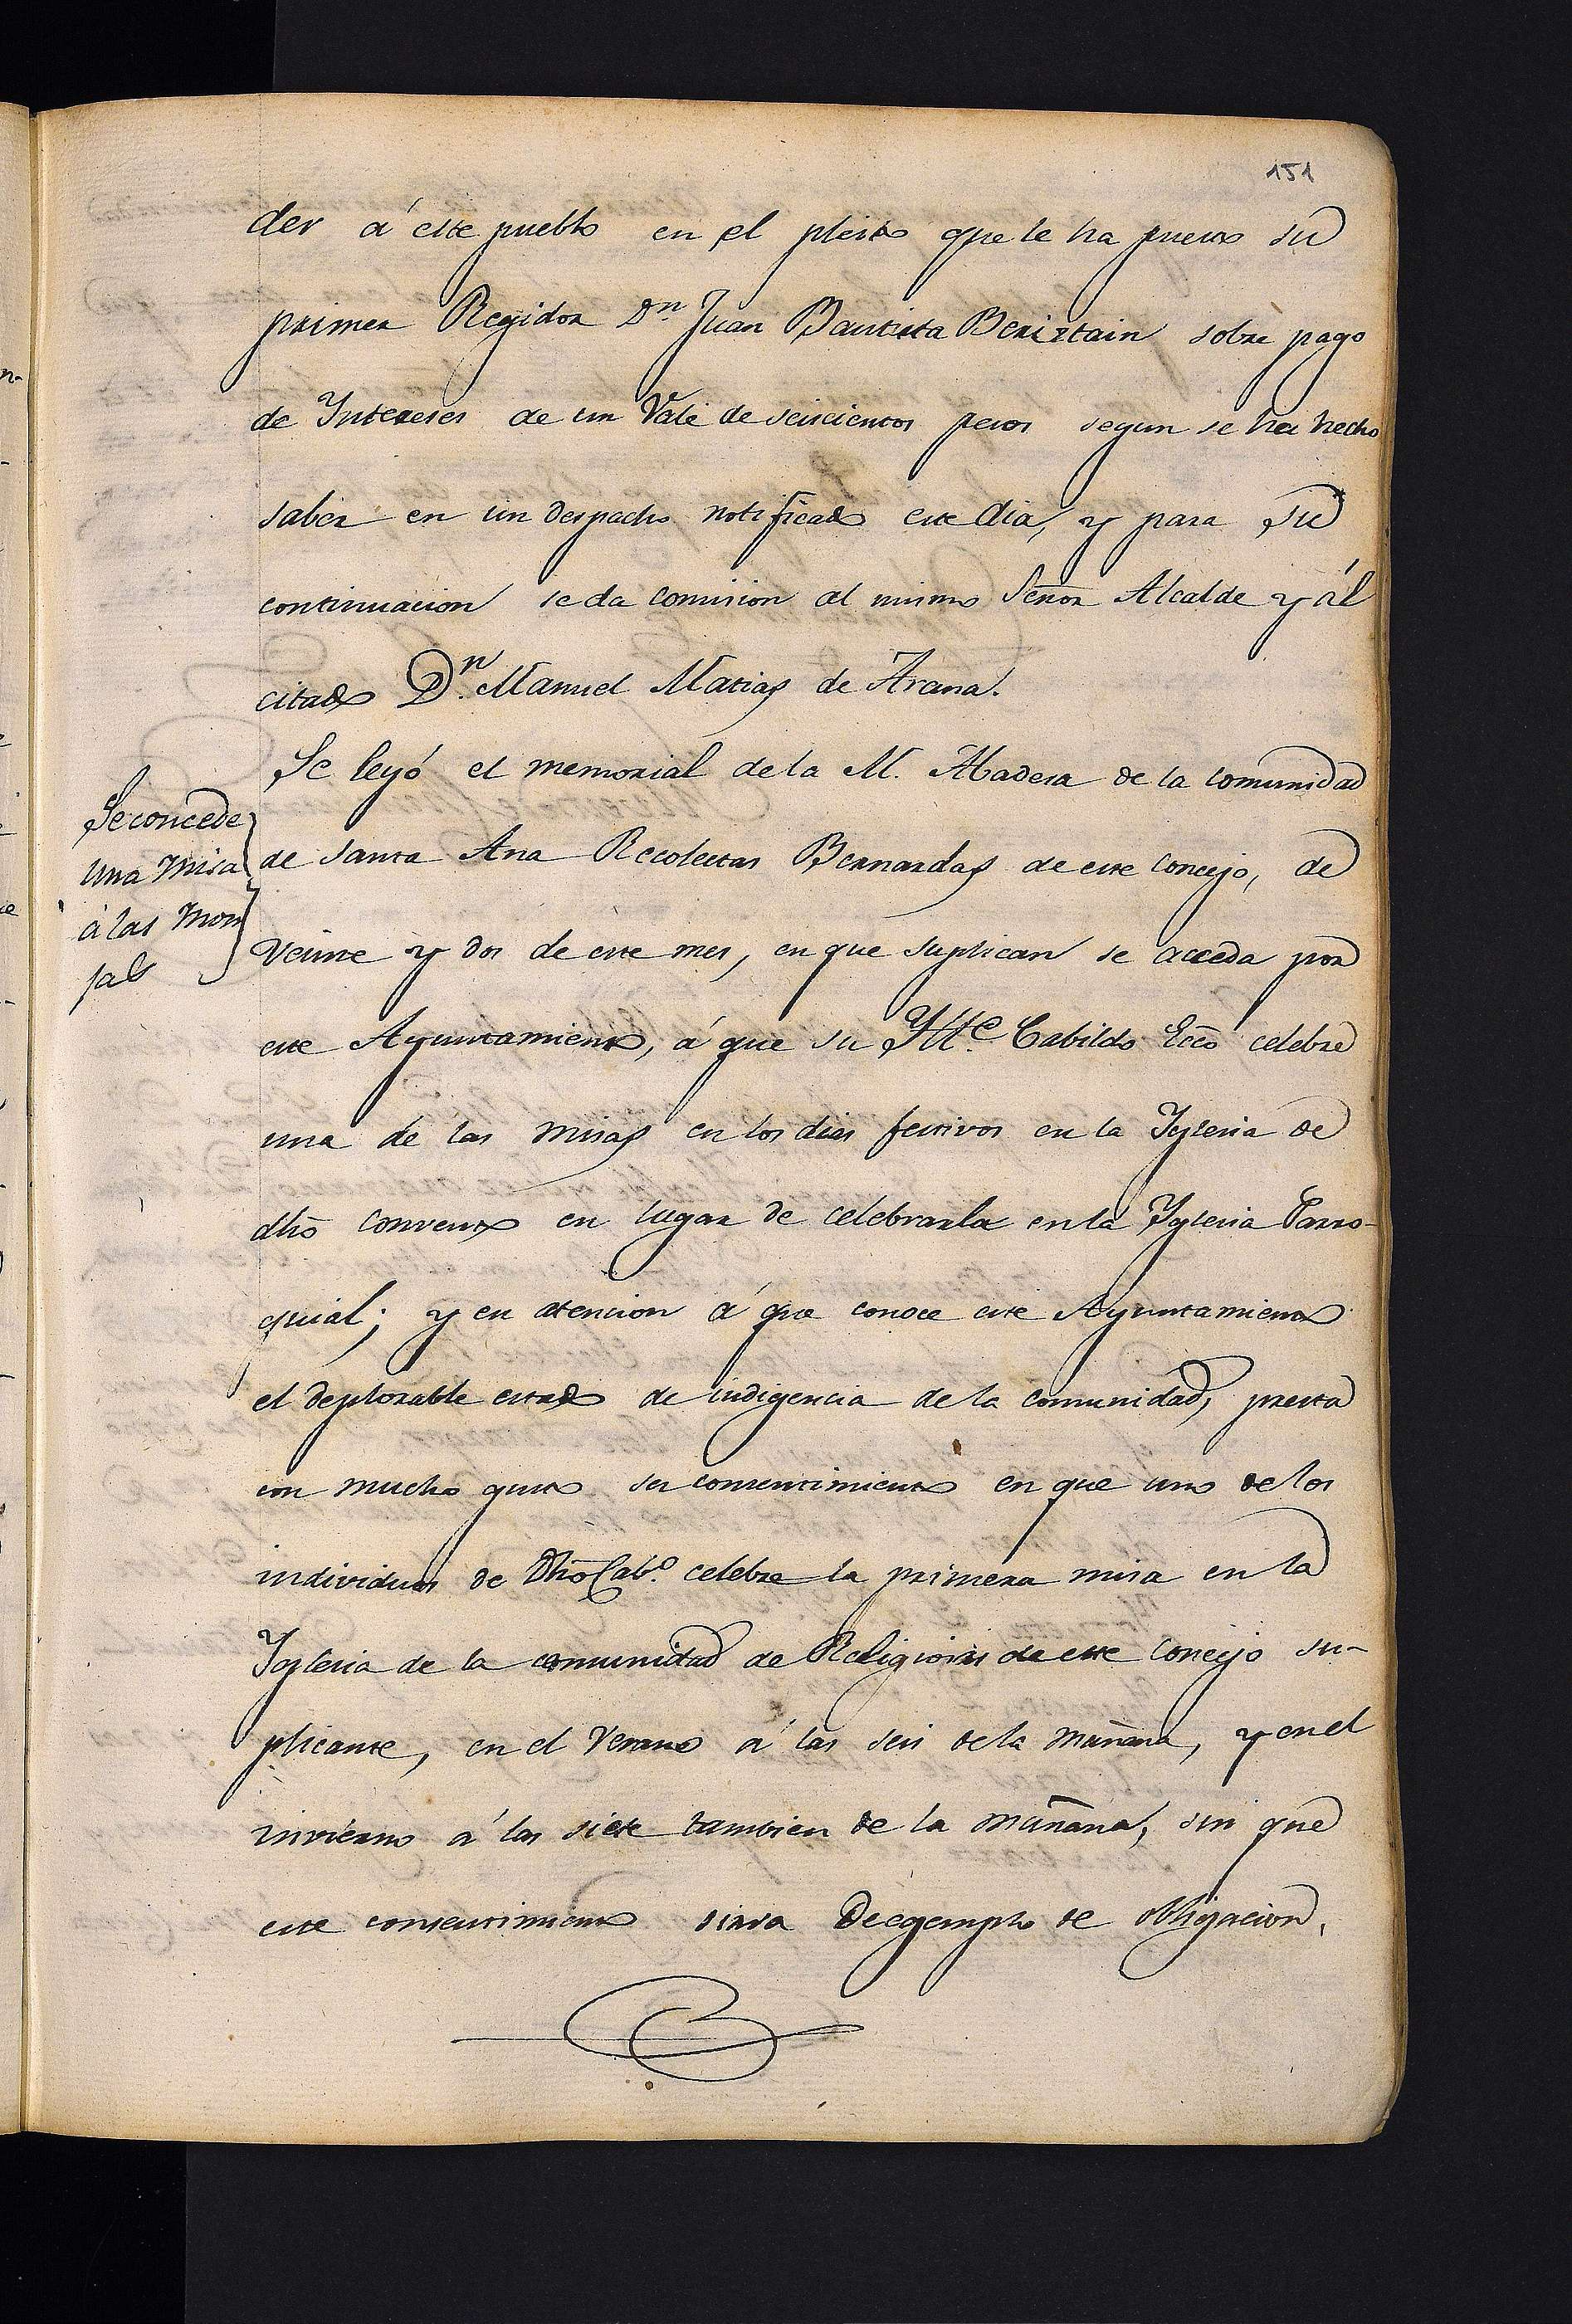 151
der á este pueblo en el pleito que le ha puesto su
primer Regidor Dn. Juan Bautista Beriztain sobre pago
de Yntereses de un Vale de seiscientos pesos segun se ha hecho
saber en un despacho notificado este dia, y para su
continuacion se da comision al mismo Señor Alcalde y ál
citado Dn. Manuel Matias de Arana.
Se leyó el memorial de la M. Abadesa de la comunidad
Se concede
una misa
á las Mon
jas
de Santa Ana Recoletas Bernardas de este concejo, de
veinte y dos de este mes, en que suplican se acceda por
este Ayuntamiento, á que su Ylte. Cabildo Ecco celebre
una de las misas en los dias festivos en la Yglesia de
dho convento en lugar de celebrarla en la Yglesia Parro-
quial; y en atencion á que conoce este Ayuntamiento
el deplorable estado de indigencia de la comunidad, presta
con mucho gusto su consentimiento en que uno de los
individuos de Dho Cabo. celebre la primera misa en la
Yglesia de la comunidad de Religiosas de este concejo su-
plicante, en el Verano á las seis de la mañana, y en el
invierno á las siete tambien de la mañana, sin que
este consentimiento sirva de egemplo de obligacion.